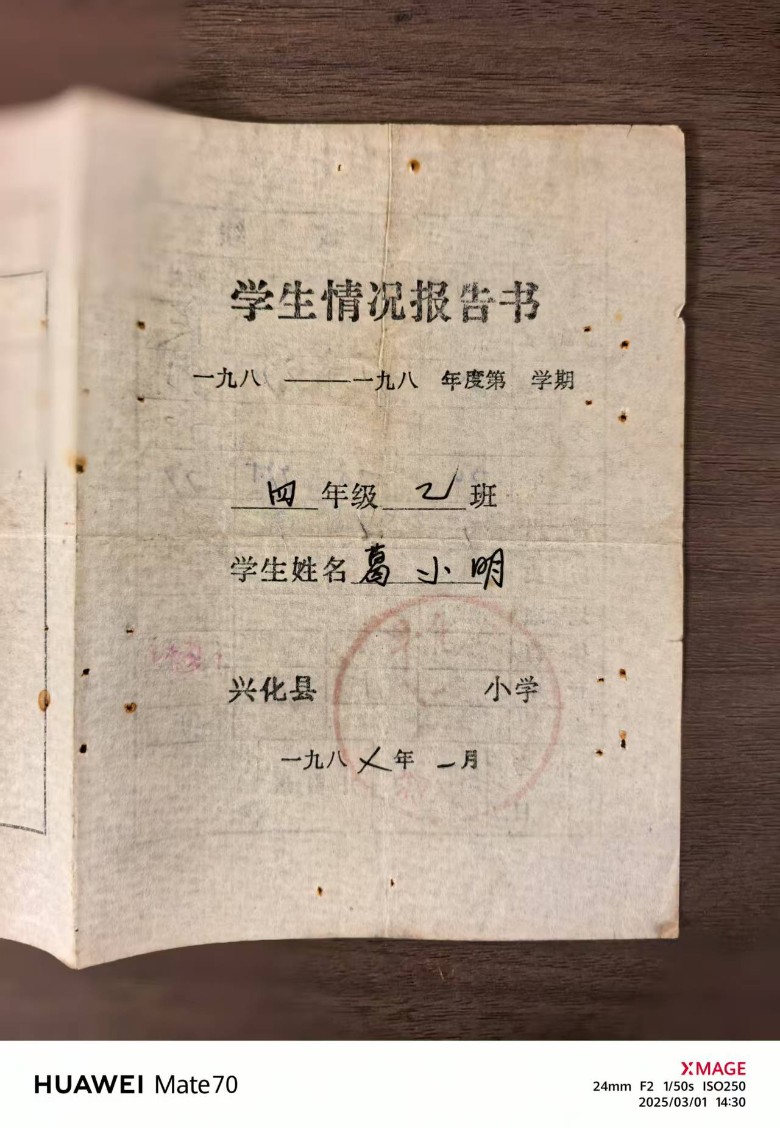 学生情况报告书
一九八 ——一九八 年度第 学期
四年级乙班
学生姓名葛小明
兴化县 小学
一九八乂年一月
HUAWEI Mate70
XMAGE
24mm F2 1/50s ISO250
2025/03/01 14:30